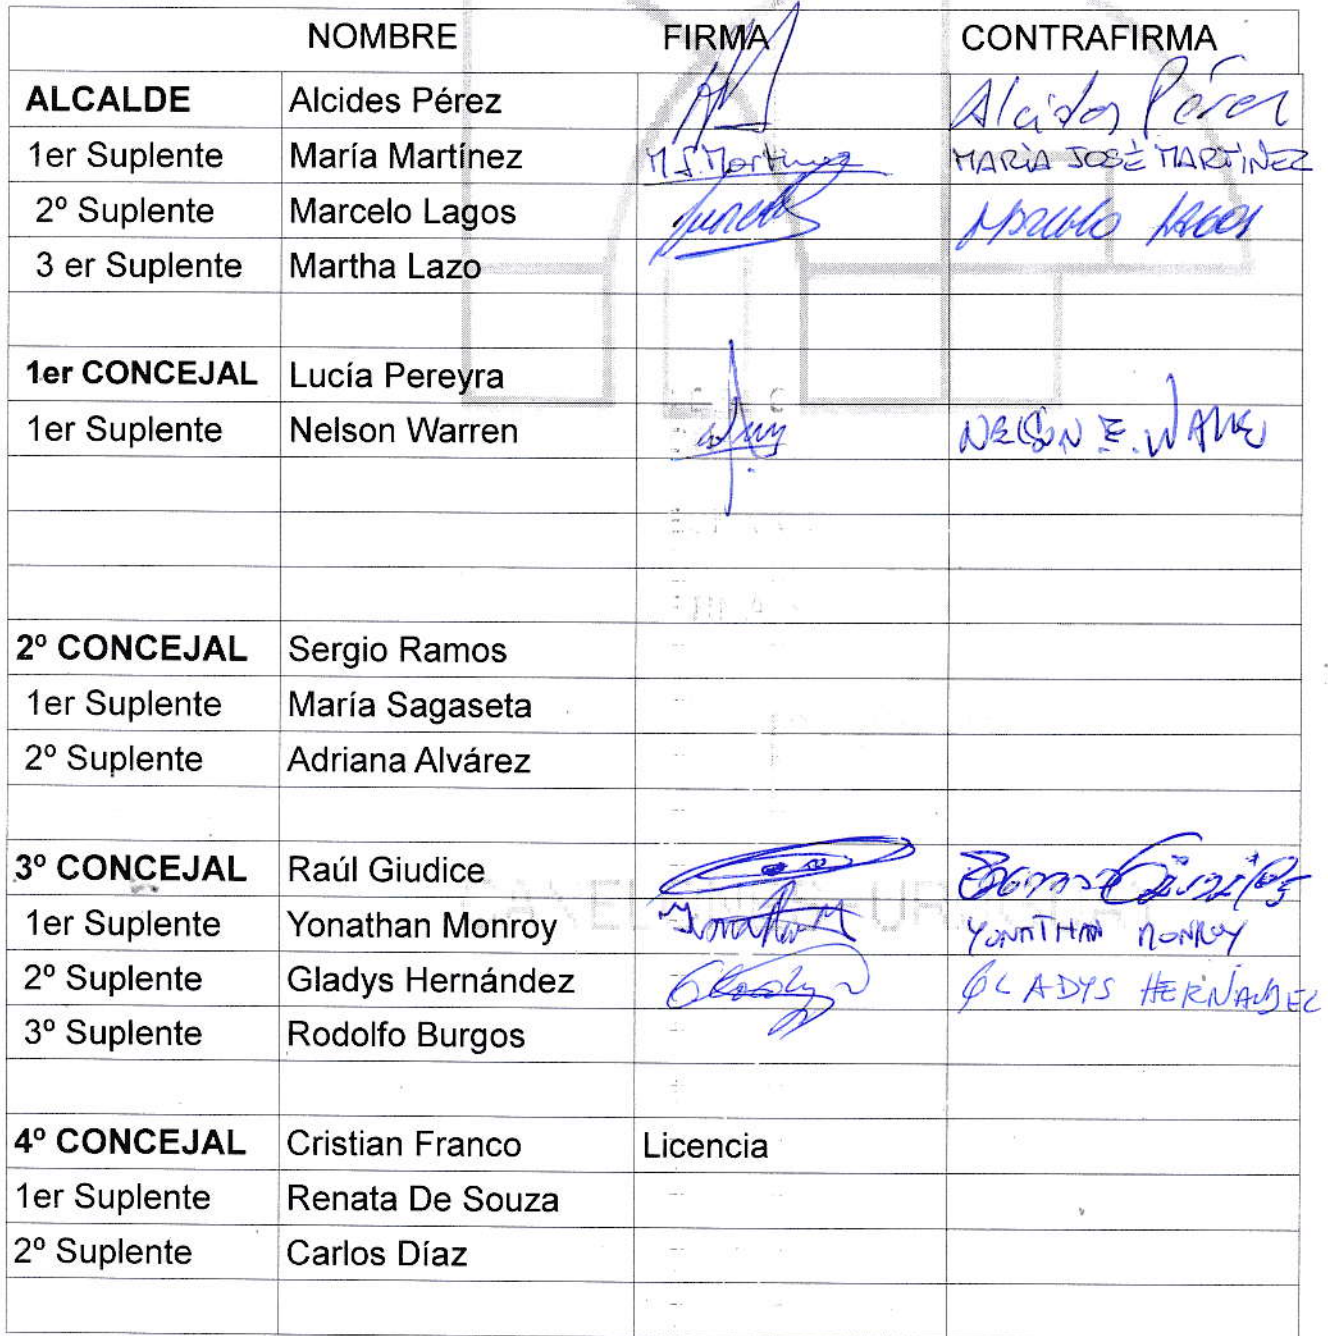 NOMBRE FIRMA CONTRAFIRMA
ALCALDE Alcides Pérez Alcides Pérez
1er Suplente María Martínez M.J.Martinez MARÍA JOSÉ MARTÍNEZ
2º Suplente Marcelo Lagos Marcelo Lagos
3 er Suplente Martha Lazo
1er CONCEJAL Lucía Pereyra
1er Suplente Nelson Warren NELSON E. WARREN
2º CONCEJAL Sergio Ramos
1er Suplente María Sagaseta
2º Suplente Adriana Alvárez
3º CONCEJAL Raúl Giudice
1er Suplente Yonathan Monroy YONATHAN MONROY
2º Suplente Gladys Hernández Gladys GLADYS HERNANDEZ
3º Suplente Rodolfo Burgos
4º CONCEJAL Cristian Franco Licencia
1er Suplente Renata De Souza
2º Suplente Carlos Díaz